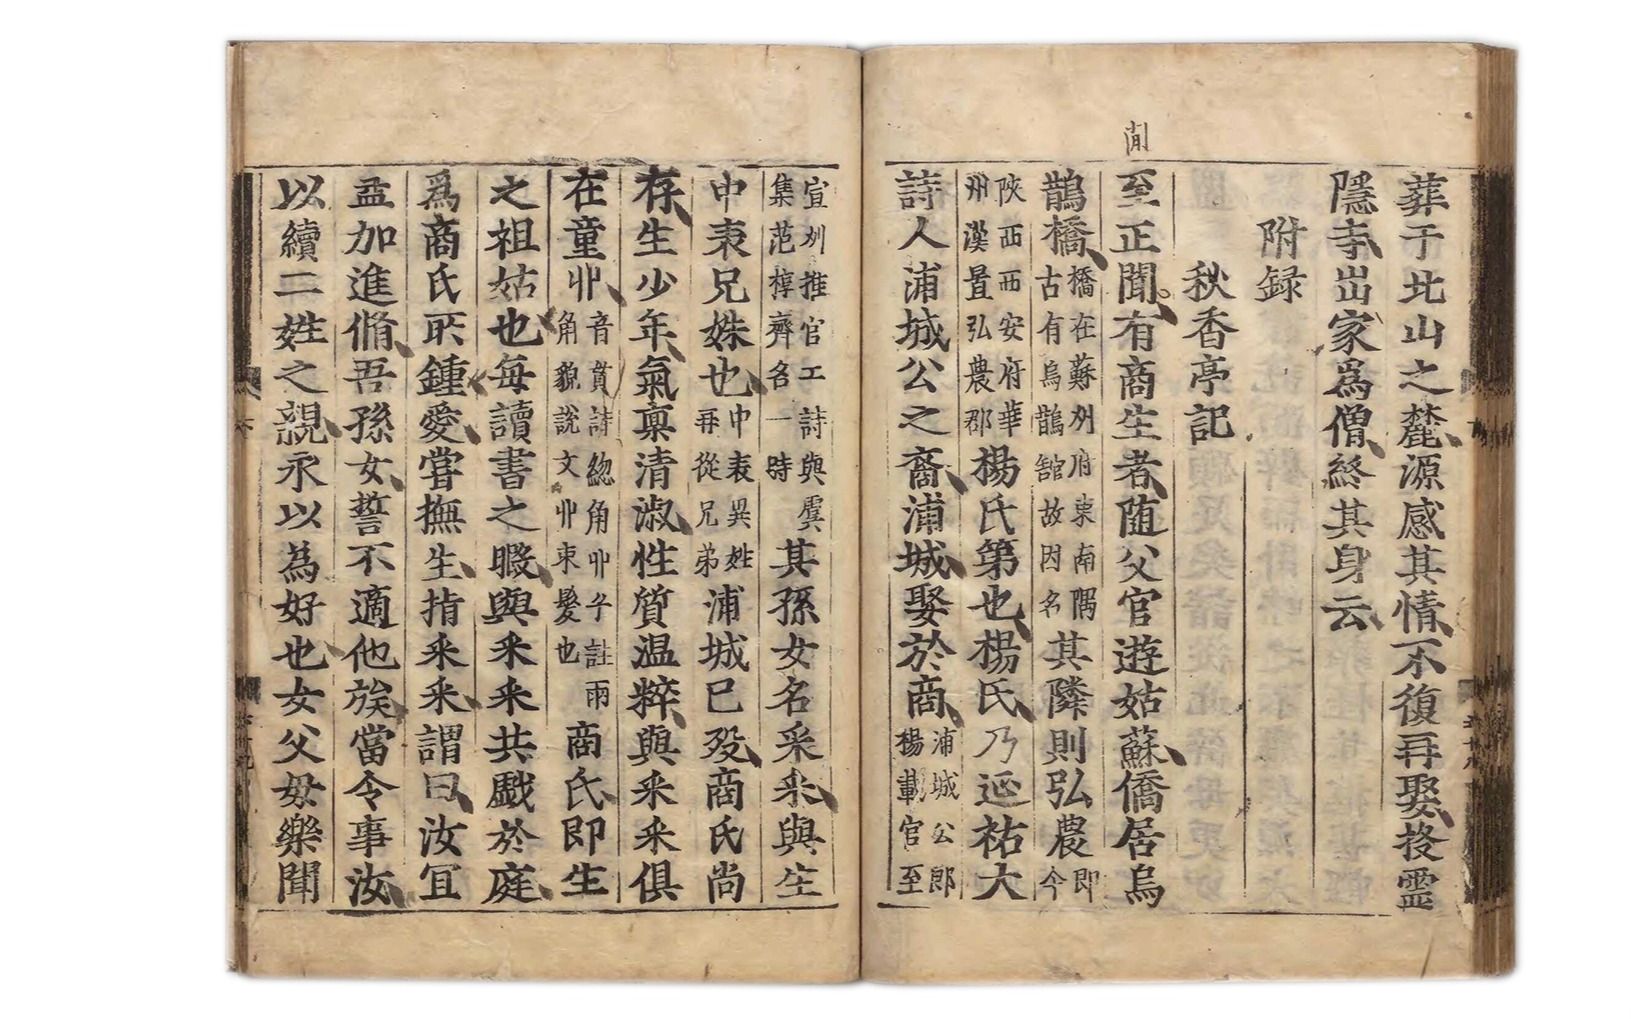 閒
葬于北山之麓源感其情不復再娶投霊
隱寺出家爲僧終其身云
附録
秋香亭記
至正聞有商生者随父官遊姑蘇僑居烏
鵲橋橋在蘇州府東南隅古有烏鵲舘故因名其隣則弘農即今
陜西西安府華州漢置弘農郡楊氏第也楊氏乃延祐大
詩人浦城公之裔浦城娶於商浦城公郎楊載官至
宣州推官工詩與虞集范梈齊名一時其孫女名采采與生
中表兄姝也中表異姓再從兄弟浦城已歿商氏尚
存生少年氣稟清淑性質温粹與采采俱
在童丱音貫詩總角丱兮註兩角貌説文丱束髮也商氏即生
之祖姑也每讀書之暇與采采共戱於庭
爲商氏所鍾愛甞撫生指采采謂曰汝冝
益加進脩吾孫女誓不適他族當令事汝
以續二姓之親永以為好也女父母樂聞